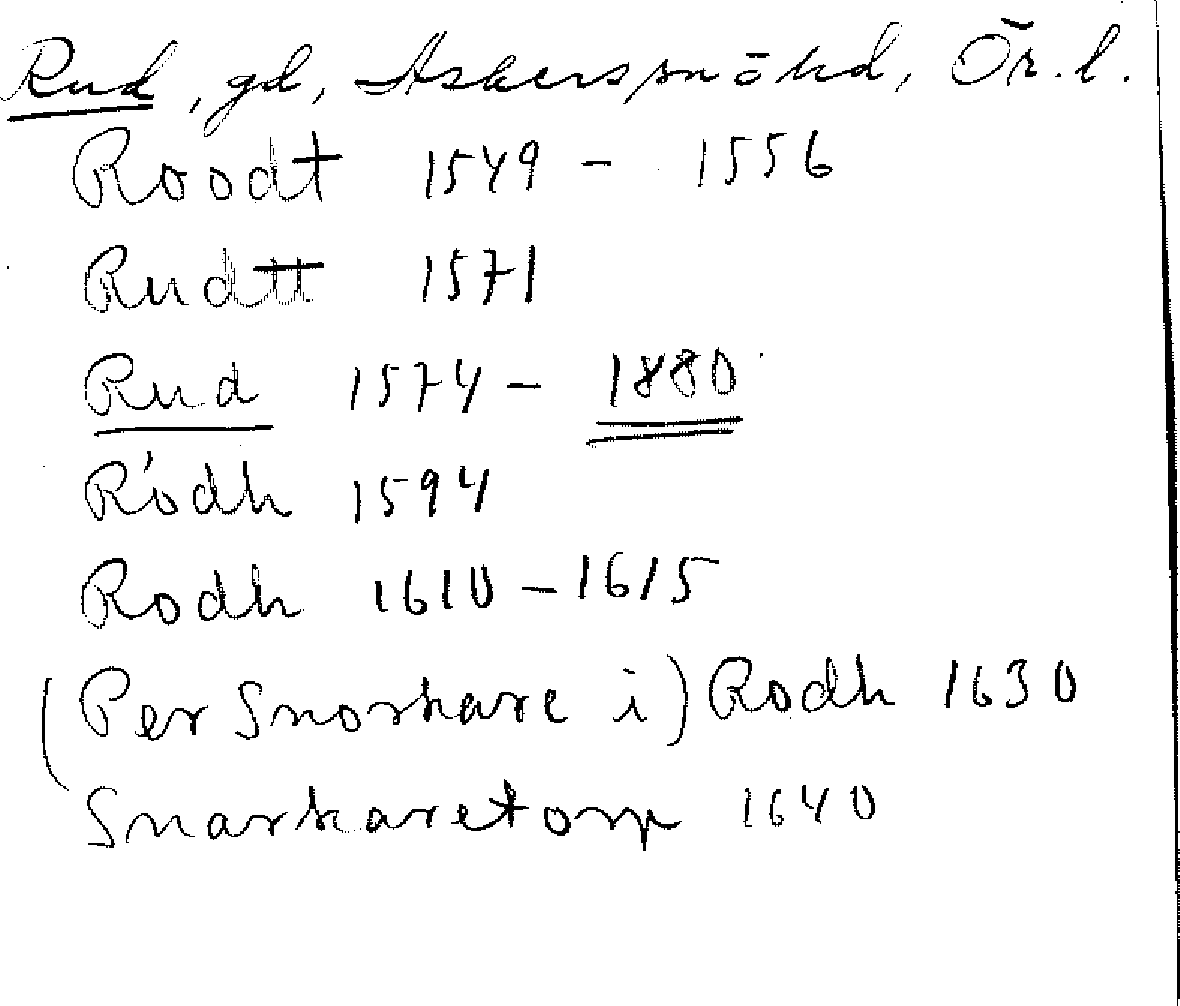 Rud, gd, Askers sn o hd, Ör. l.
Roodt 1549 - 1556
Rudtt 1571
Rud 1574 - 1880
Ródh 1594
Rodh 1610 - 1615
(Per Snorkare i) Rodh 1630
Snarkaretorp 1640